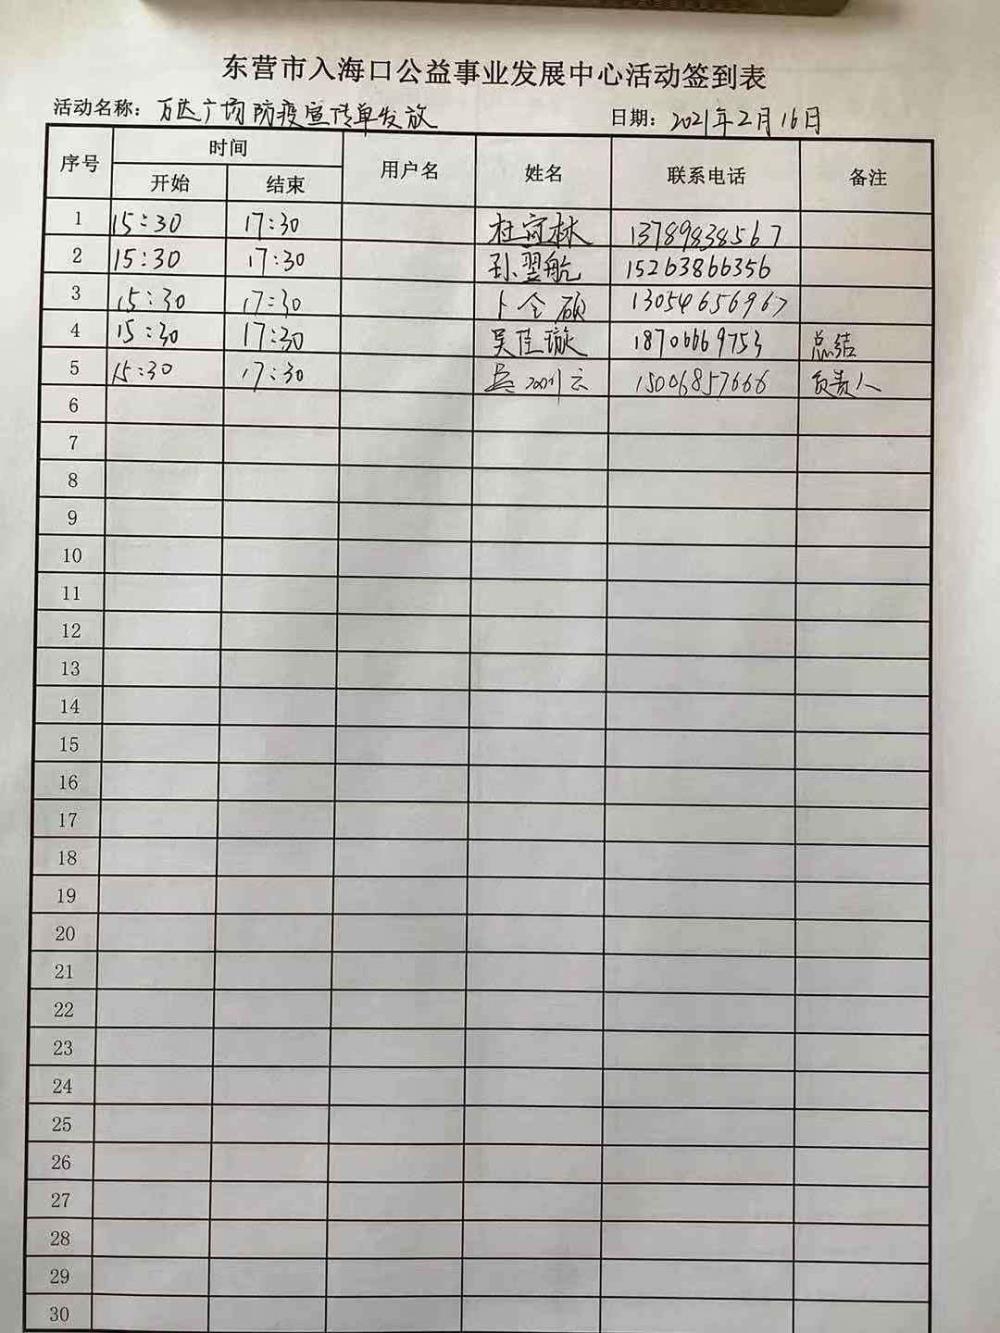 东营市入海口公益事业发展中心活动签到表
活动名称：万达广场防疫宣传单发放 日期：2021年2月16日
序号 时间 用户名 姓名 联系电话 备注
开始 结束
1 15:30 17:30 杜 林 13789838567
2 15:30 17:30 孙翌航 15263866356
3 15:30 17:30 卜仝硕 13054656967
4 15:30 17:30 吴佳璇 18706669753 总结
5 15:30 17:30 15006857666 负责人
6
7
8
9
10
11
12
13
14
15
16
17
18
19
20
21
22
23
24
25
26
27
28
29
30